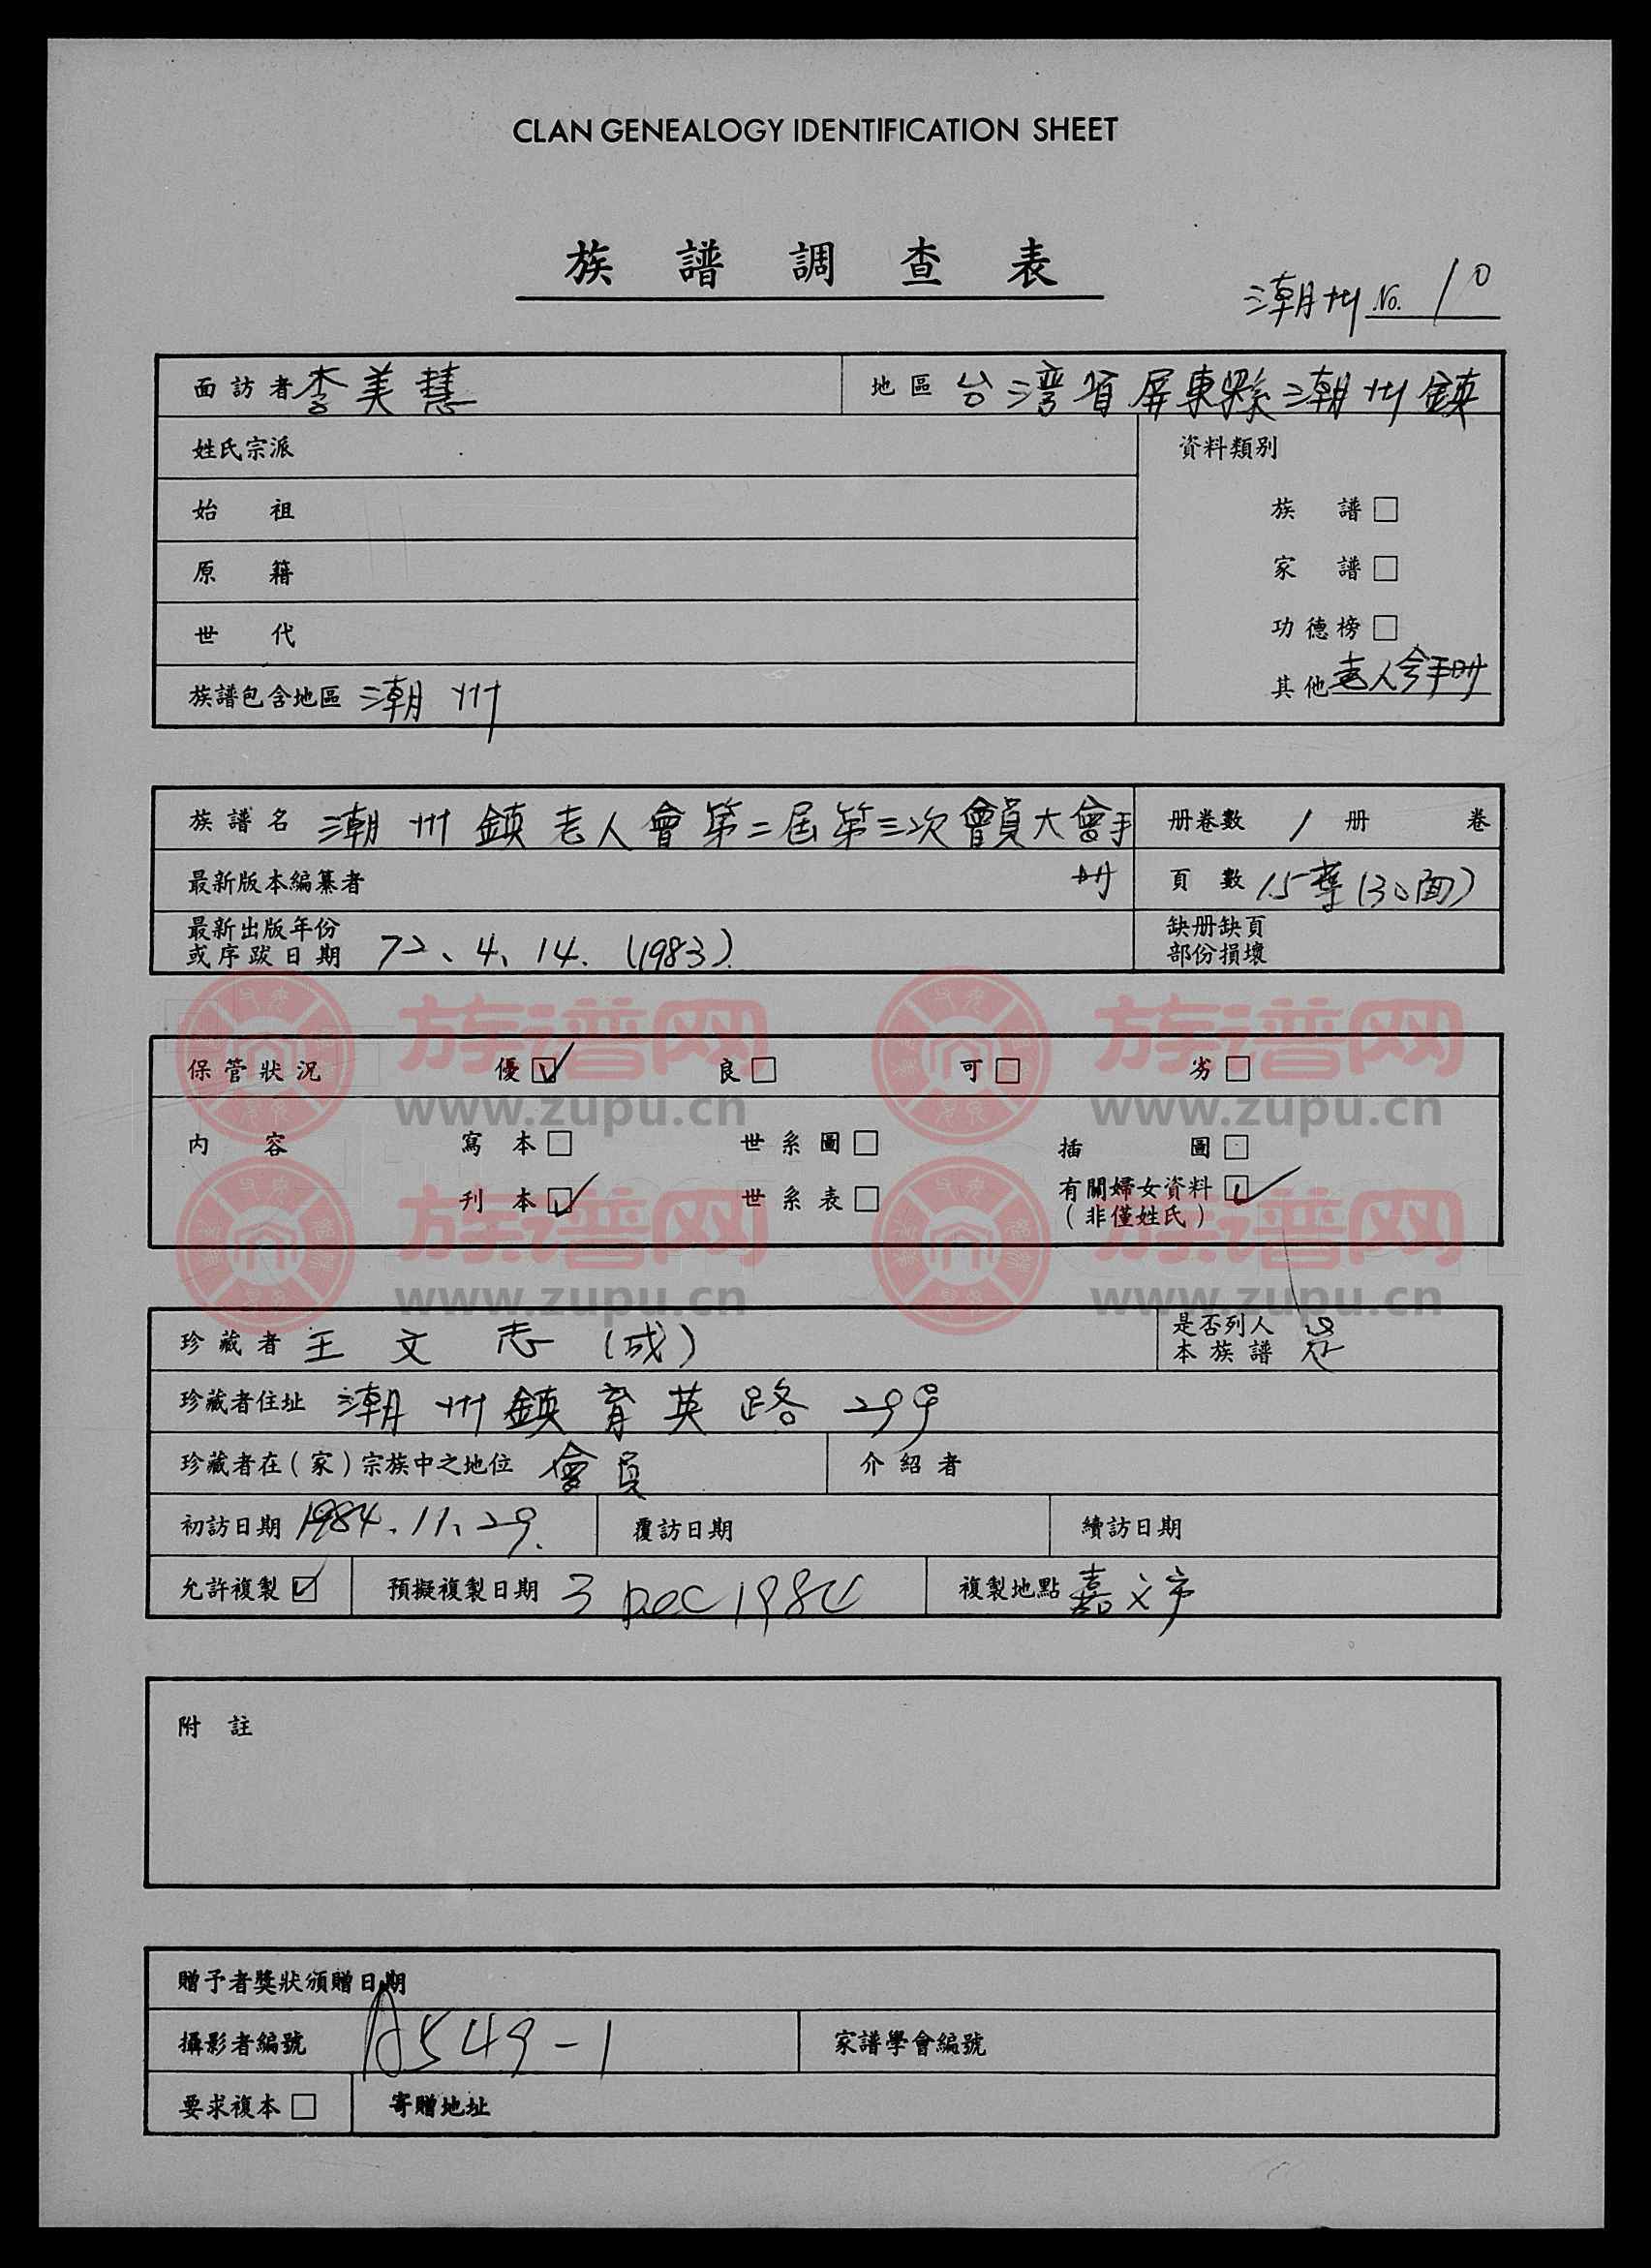 CLAN GENEALOGY IDENTIFICATION SHEET
族譜調查表
潮州 No. 10
面訪者 李美慧 地區 台灣省屏東縣潮州鎮
姓氏宗派 資料類別
始祖 族譜□
原籍 家譜□
世代 功德榜□
族譜包含地區 潮州 其他 老人會手册
族譜名 潮州鎮老人會第二届第三次會員大會手册 册卷數 1 册 卷
最新版本編纂者 頁數 15葉(30面)
最新出版年份
或序跋日期 72、4、14.(1983).
缺册缺頁
部份損壞
保管狀況 優☑ 良□ 可□ 劣□
内容 寫本□ 世系圖□ 插圖□
刊本☑ 世系表□ 有關婦女資料☑
(非僅姓氏)
珍藏者 王文志(成) 是否列入
本族譜 是
珍藏者住址 潮州鎮育英路299
珍藏者在(家)宗族中之地位 會員 介紹者
初訪日期 1984.11、29. 覆訪日期 續訪日期
允許複製☑ 預擬複製日期 3 DEC 1984 複製地點 嘉义市
附註
贈予者獎狀頒贈日期
攝影者編號 A549-1 家譜學會編號
要求複本□ 寄贈地址
族谱网
www.zupu.cn
族谱网
www.zupu.cn
族谱网
www.zupu.cn
族谱网
www.zupu.cn